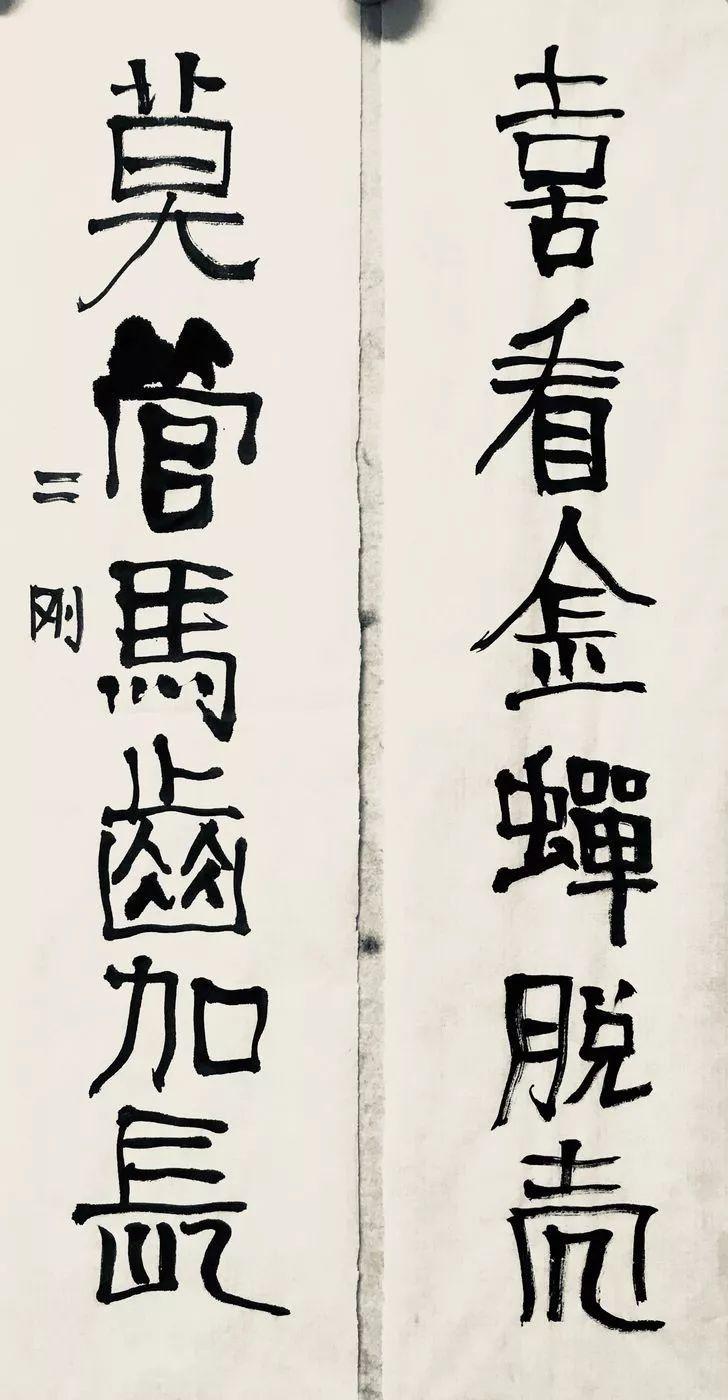 喜看金蟬脱壳
莫管馬齒加長
二刚